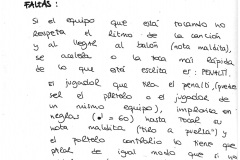 FALTAS:
Si el equipo que está tocando no
respeta el ritmo de la canción
y al llegar al balón (nota maldita),
se acelera o la toca más rápida
de lo que está escrita es: PENALTI,
el jugador que tira el penalti, (puede
ser el portero o el jugador de
un mismo equipo), improvisa en
negras (a 60) hasta tocar su
nota maldita ("tiro a puerta") y
el portero contrario lo tiene que
parar de igual modo que si un